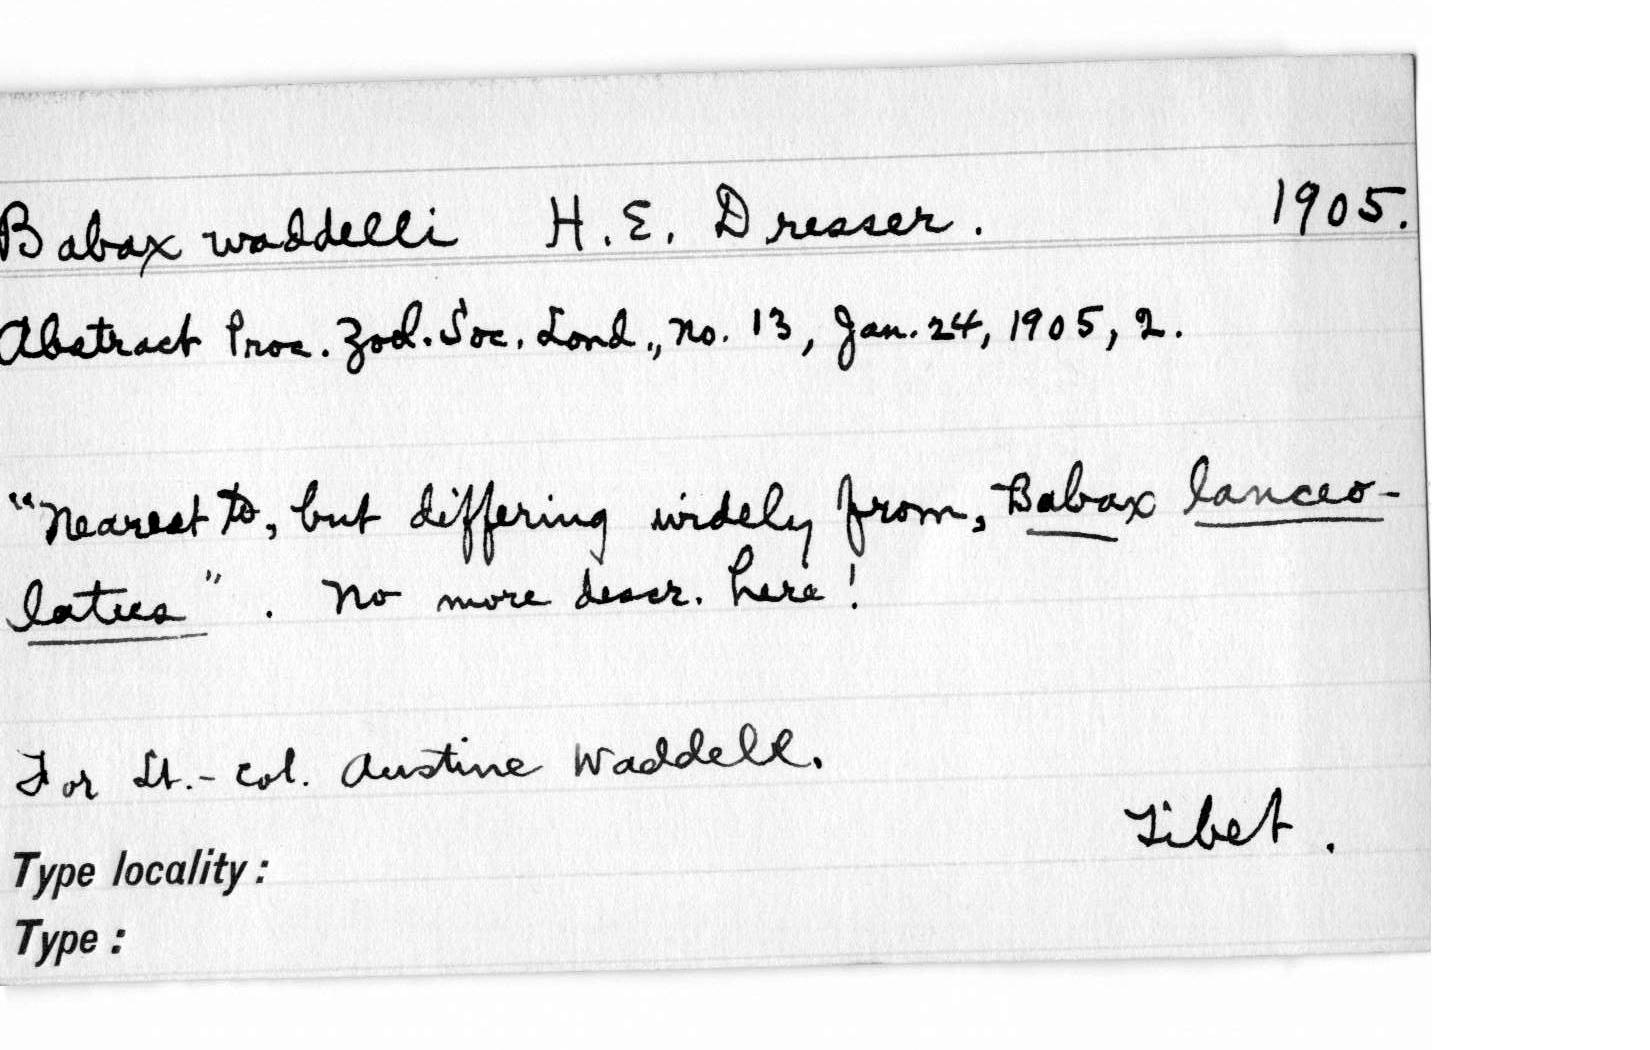 Babax waddelli H.E. Dresser. 1905.
Abstract Proc. Zool. Soc. Lond., no. 13, Jan. 24, 1905, 2.
"Nearest to, but differing widely from, Babax lanceo-
latus". No more descr. here!
For Lt.-Col. Austine Waddell.
Tibet.
Type locality:
Type: